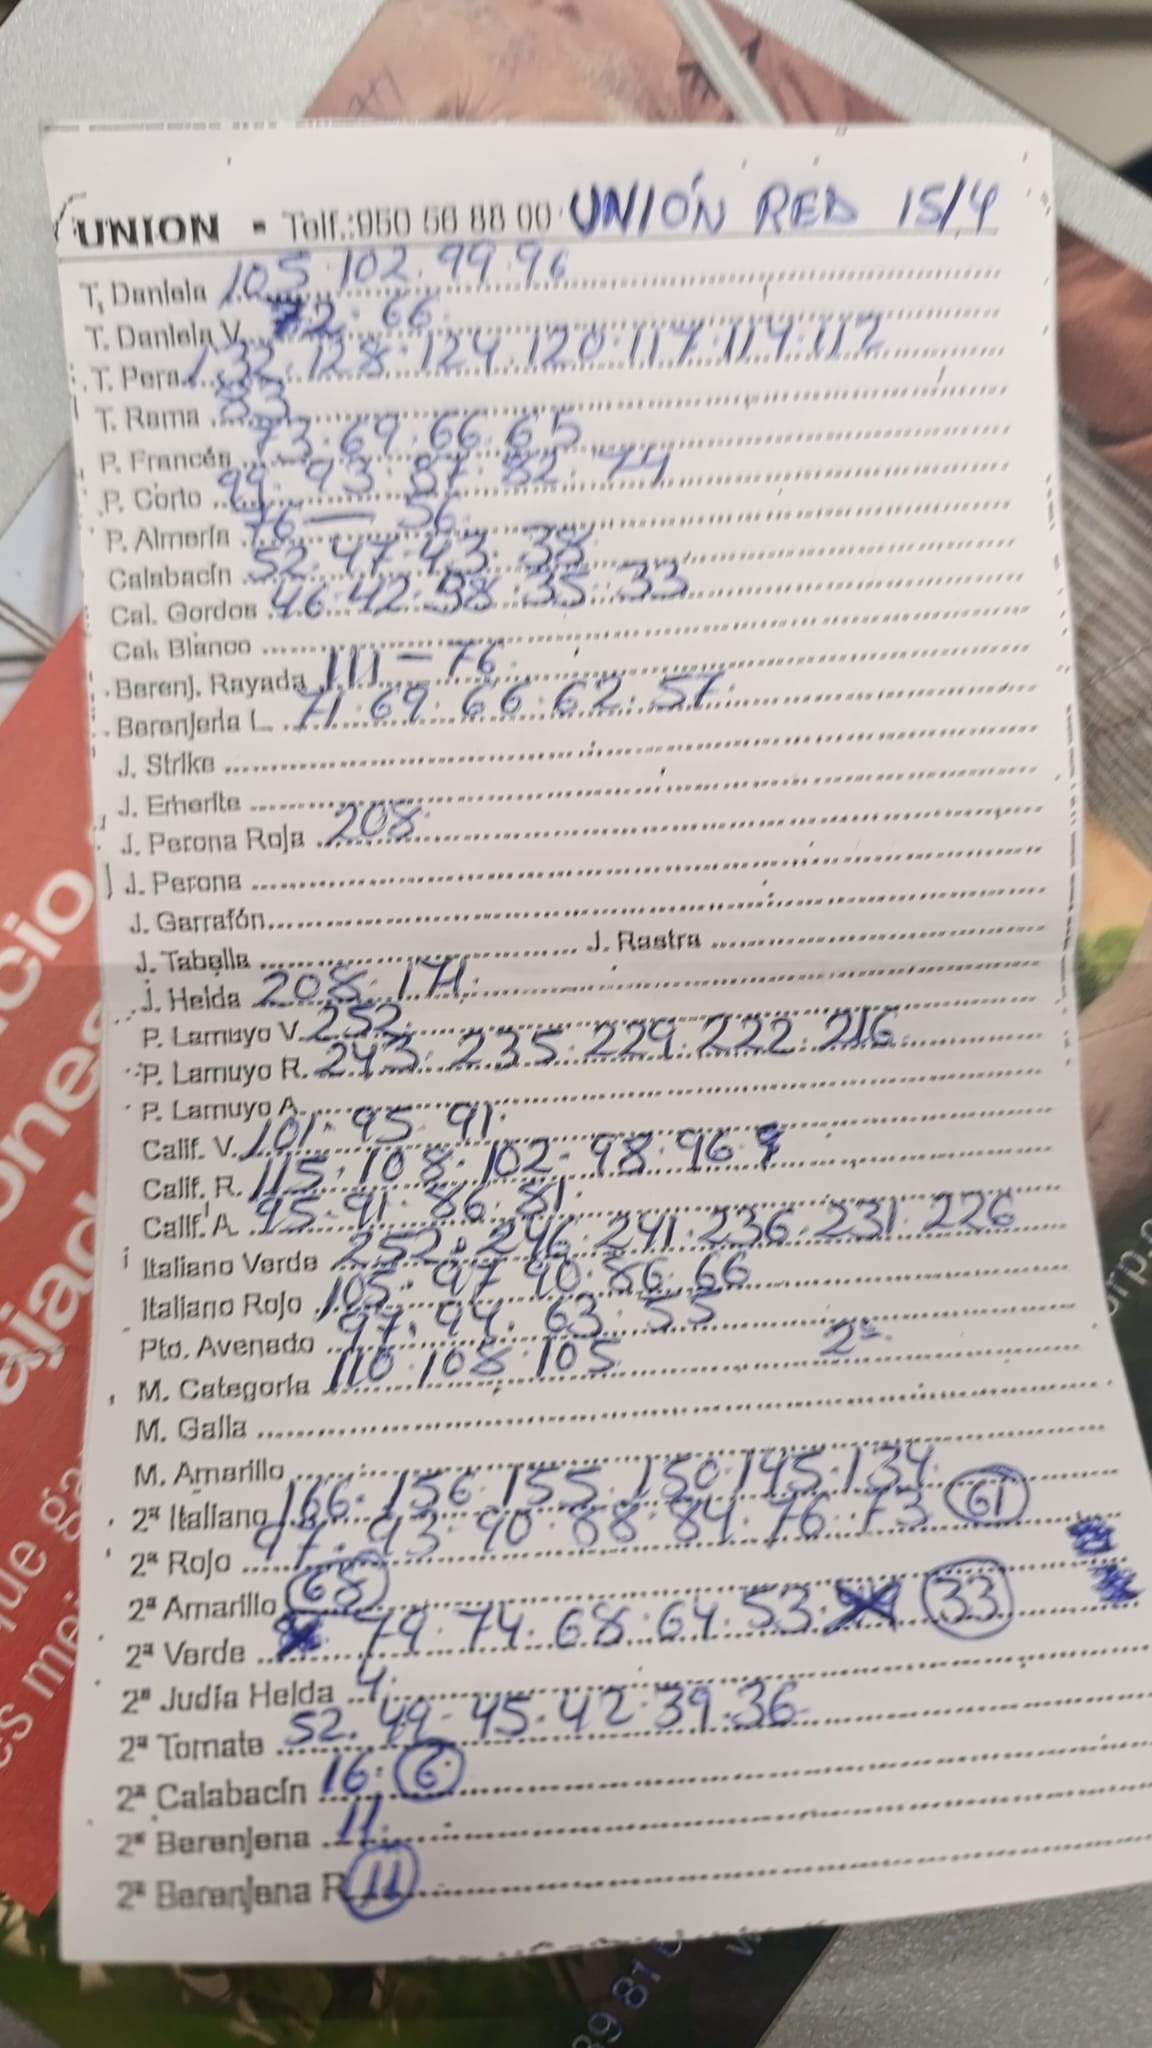 UNION - Telf.:950 56 88 00 UNIÓN RED 15/4
T. Daniela 105·102·99·96
T. Daniela V. 72·66·
T. Pera 132·128·124·120·117·114·112
T. Rama 83
P. Francés 73·69·66·65
P. Corto 99·93·87·82·74
P. Almería 76 — 56·
Calabacín 52·47·43·38
Cal. Gordos 46·42·38·35·33
Cal. Blanco
Berenj. Rayada 111 — 76·
Berenjena L. 71·69·66·62·57·
J. Strike
J. Emerite
J. Perona Roja 208·
J. Perona
J. Garrafón
J. Tabella J. Rastra
J. Helda 208·171·
P. Lamuyo V. 252·
P. Lamuyo R. 243·235·229·222·216
P. Lamuyo A.
Calif. V. 101·95·91·
Calif. R. 115·108·102·98·96·
Calif. A. 95·91·86·81·
Italiano Verde 252·246·241·236·231·226
Italiano Rojo 105·97·90·86·66
Pto. Avenado 97·94·63·55
M. Categoría 110·108·105 2ª
M. Galia
M. Amarillo
2ª Italiano 166·156·155·150·145·134·
2ª Rojo 97·93·90·88·84·76·73 61
2ª Amarillo 68
2ª Verde 79·74·68·64·53· 33
2ª Judía Helda 4·
2ª Tomate 52·49·45·42·39·36
2ª Calabacín 16·6·
2ª Berenjena 11·
2ª Berenjena R. 11